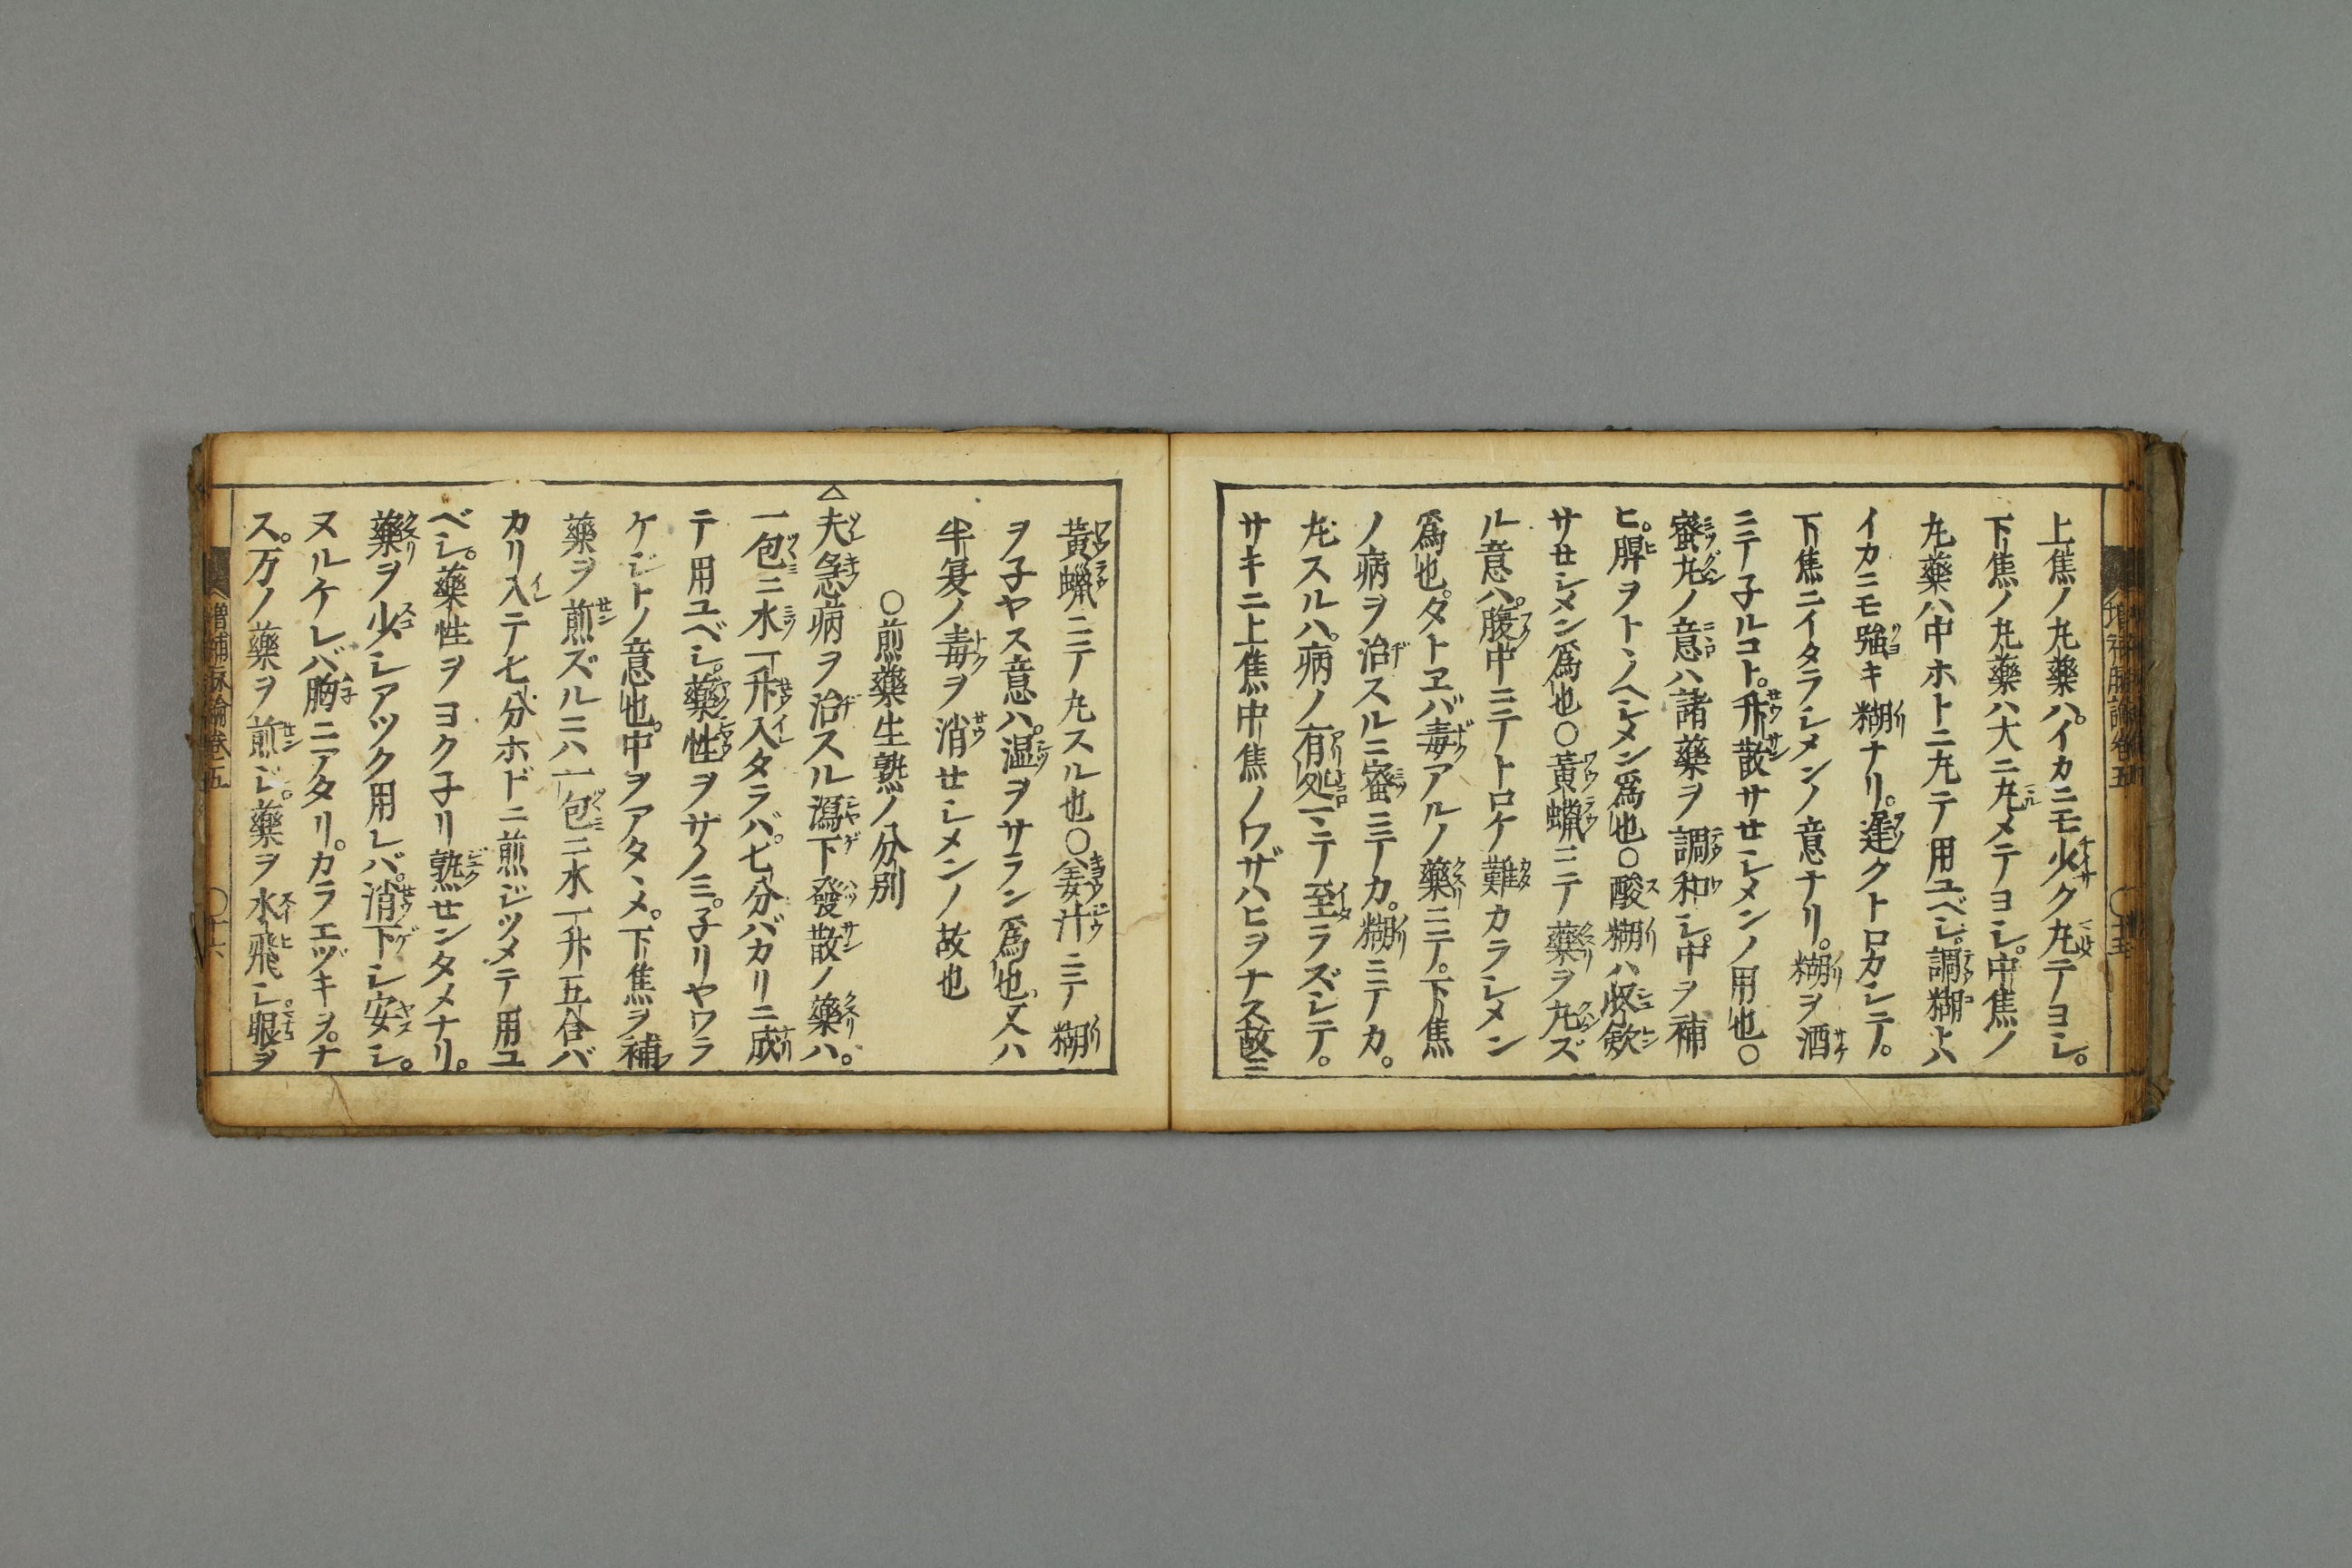 上焦ノ丸藥ハ。イカニモ少ク丸テヨシ。
下焦ノ丸藥ハ大ニ丸メテヨシ。中焦ノ
丸藥ハ中ホトニ丸テ用ユベシ。調糊ハ
イカニモ強キ糊ナリ。遅クトロカシテ。
下焦ニイタラシメンノ意ナリ。糊ヲ酒
ニテ子ルコト。升散サセシメンノ用也○
蜜丸ノ意ハ諸藥ヲ調和シ。中ヲ補
ヒ。脾ヲトヽノヘシメン爲也○酸糊ハ收歛
サセシメン爲也○黃蠟ニテ藥ヲ丸ズ
ル意ハ。腹中ニテトロケ難カラシメン
爲也。タトヱバ毒アルノ藥ニテ。下焦
ノ病ヲ治スルニ蜜ニテカ。糊ニテカ。
丸スルハ。病ノ有処ニテ至ラズシテ。
サキニ上焦中焦ノワザハヒヲナス故ニ
黃蠟ニテ丸スル也○姜汁ニテ糊
ヲ子ヤス意ハ。温ヲサラン爲也。又ハ
半夏ノ毒ヲ消セシメンノ故也
○煎藥生熟ノ分別
△夫急病ヲ治スル瀉下發散ノ藥ハ。
一包ニ水一升入タラバ。七分バカリニ成
テ用ユベシ。藥性ヲサノミ。子リヤワラ
ケジトノ意也。中ヲアタヽメ。下焦ヲ補
藥ヲ煎ズルニハ一包ニ水一升五合バ
カリ入テ七分ホドニ煎ジツメテ用ユ
ベシ。藥性ヲヨク子リ熟センタメナリ。
藥ヲ少シアツク用レバ。消下シ安シ。
ヌルケレバ胸ニアタリ。カラエヅキヲ。ナ
ス。万ノ藥ヲ煎ジ。藥ヲ水飛シ眼ヲ
増補脉論卷五 ○十五
増補脉論卷五 ○十六